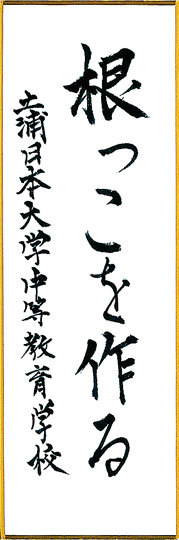 根っこを作る
土浦日本大学中等教育学校